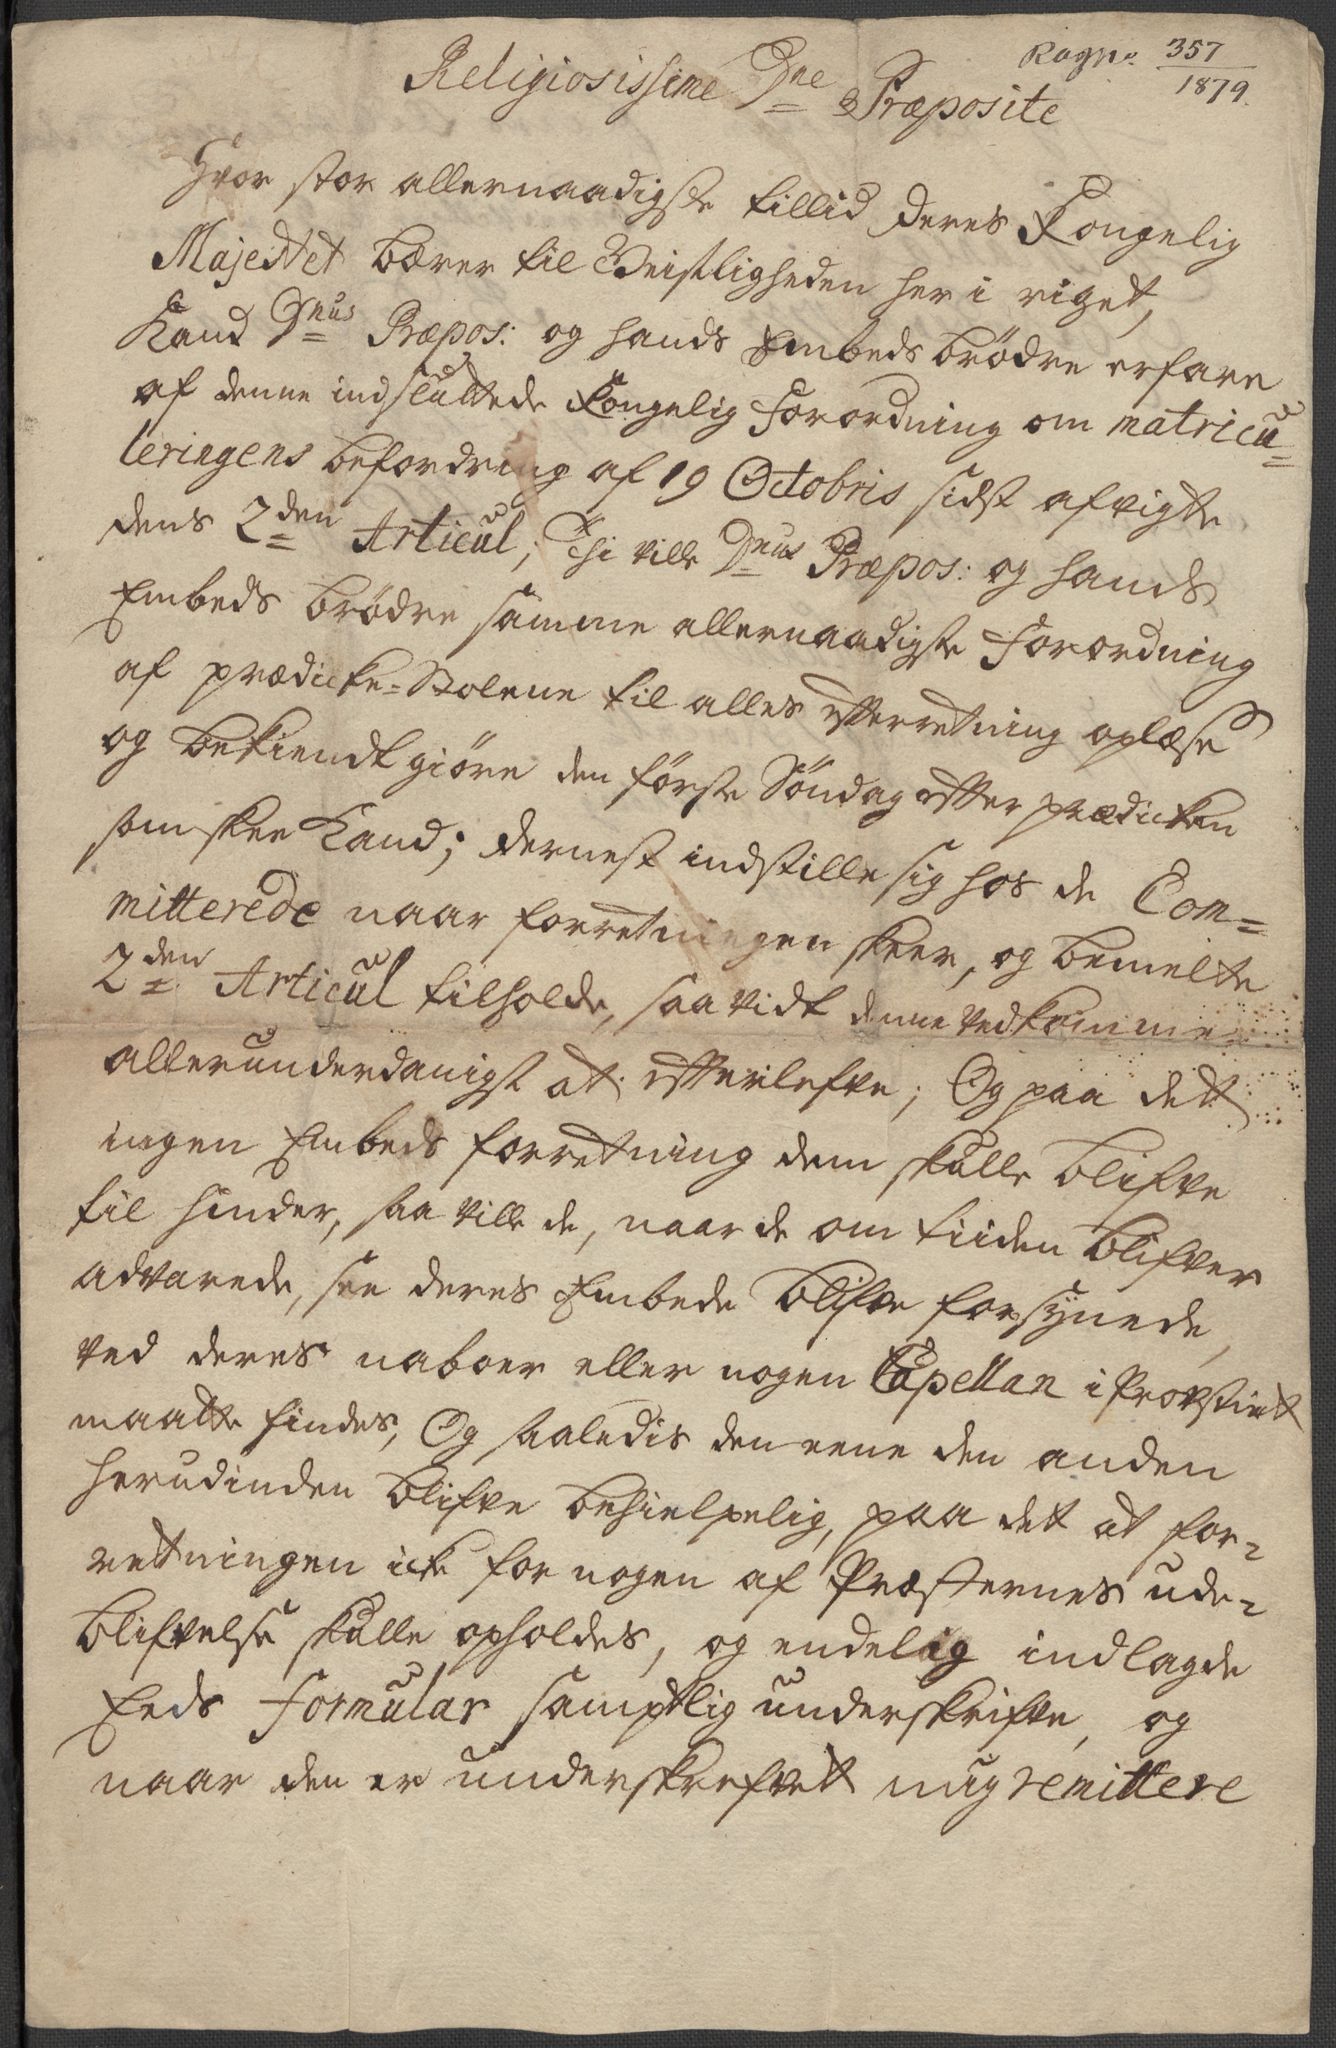 Ragn. 357
1879.
Religiosissime Dne Præposite
Hvor stor allernaadigste tillid deres Kongelig
Majestet bærer til Geistligheden her i riget,
Kand Dnus Præpos: og hands Embeds brödre erfare
af denne indsluttede Kongelig Forordning om matricu=
leringens befordring af 19 Octobris sidst afvigte
dens 2den Articul; Thi ville Dnus Præpos: og hands
Embeds brödre samme allernaadigste Forordning
af prædicke=Stolene til alles effterretning oplæse
og bekiendtgiöre den förste Söndag effter prædicken
som skee Kand; dernest indstille sig hos de Com=
mitterede naar forretningen skeer, og bemelte
2den Articul tilholde, saa vidt denne vedkomme
allerunderdanigst at effterlefve; Og paa dett
ingen Embeds forretning dem skulle blifve
til hinder, saa ville de, naar de om tiiden blifver
advarede, see deres Embede blifve forsÿnede,
ved deres naboer eller nogen Capellan i Provstiet
maatte findes, Og saaledis den eene den anden
herudinden blifve behielpelig, paa det at for=
retningen icke for nogen af Præsternes ude=
blifvelse skulle opholdes, og endelig indlagde
Eeds Formular samptlig underskrifve, og
naar den er underskrefvet mig remittere